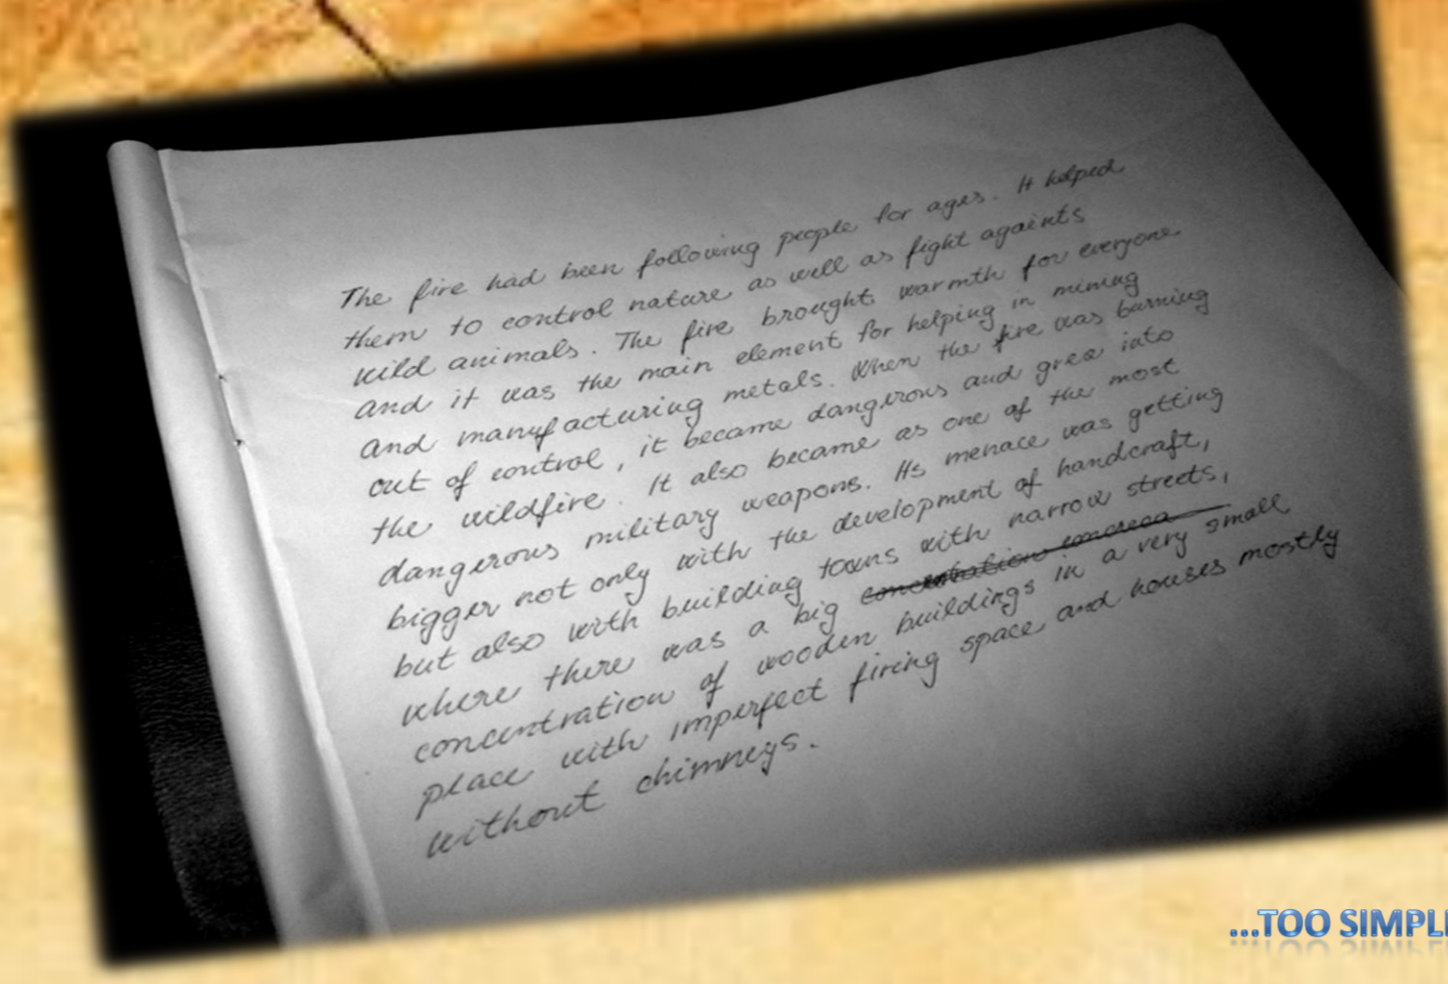 The fire had been following people for ages. It helped
them to control nature as well as fight againts
wild animals. The fire brought warmth for everyone
and it was the main element for helping in mining
and manufacturing metals. When the fire was burning
out of control, it became dangerous and grew into
the wildfire. It also became as one of the most
dangerous military weapons. Its menace was getting
bigger not only with the development of handcraft,
but also with building towns with narrow streets,
where there was a big
concentration of wooden buildings in a very small
place with imperfect firing space and houses mostly
without chimneys.
...TOO SIMPLE